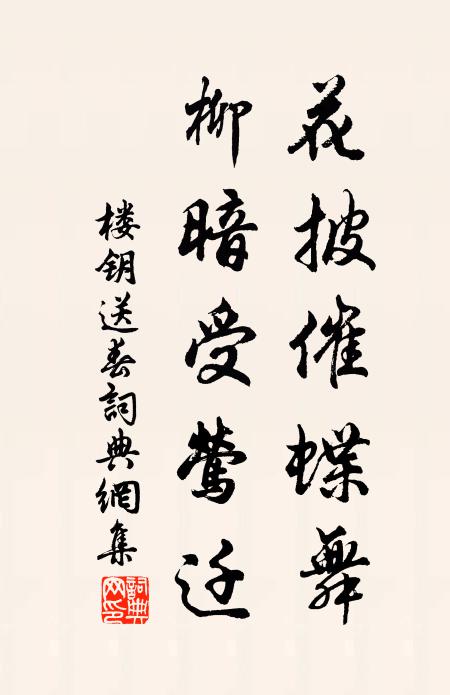 花披催蝶舞
柳暗受莺迁
楼钥送春詞典網集
詞典
网印